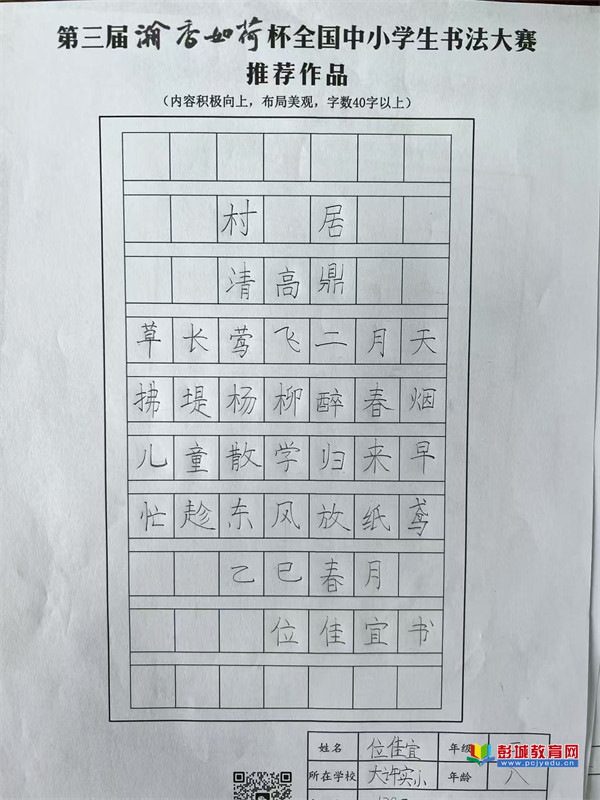 第三届瀚香如荷杯全国中小学生书法大赛
推荐作品
（内容积极向上，布局美观，字数40字以上）
村居
清高鼎
草长莺飞二月天
拂堤杨柳醉春烟
儿童散学归来早
忙趁东风放纸鸢
乙巳春月
位佳宜书
姓名 位佳宜 年级
所在学校 大许实小 年龄 八
彭城教育网
www.pcjyedu.cn